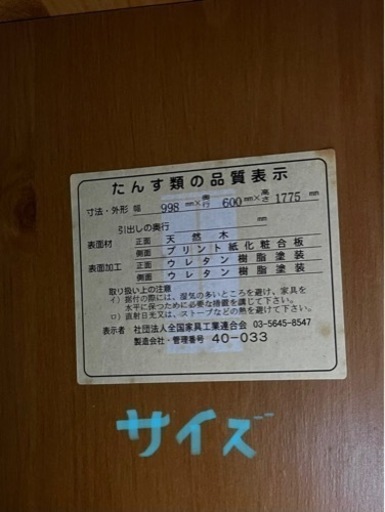 たんす類の品質表示
寸法・外形 幅 998 mm× 奥行 600 mm× 高さ 1775 mm
引出しの奥行 mm
表面材 正面 天然木
側面 プリント紙化粧合板
表面加工 正面 ウレタン樹脂塗装
側面 ウレタン樹脂塗装
取り扱い上の注意
イ）据付の際には、湿気の多いところを避け、家具を
水平に保つために必要な措置を講じて下さい。
ロ）直射日光又は、ストーブなどの熱を避けて下さい。
表示者 社団法人全国家具工業連合会 03-5645-8547
製造会社・管理番号 40-033
サイズ